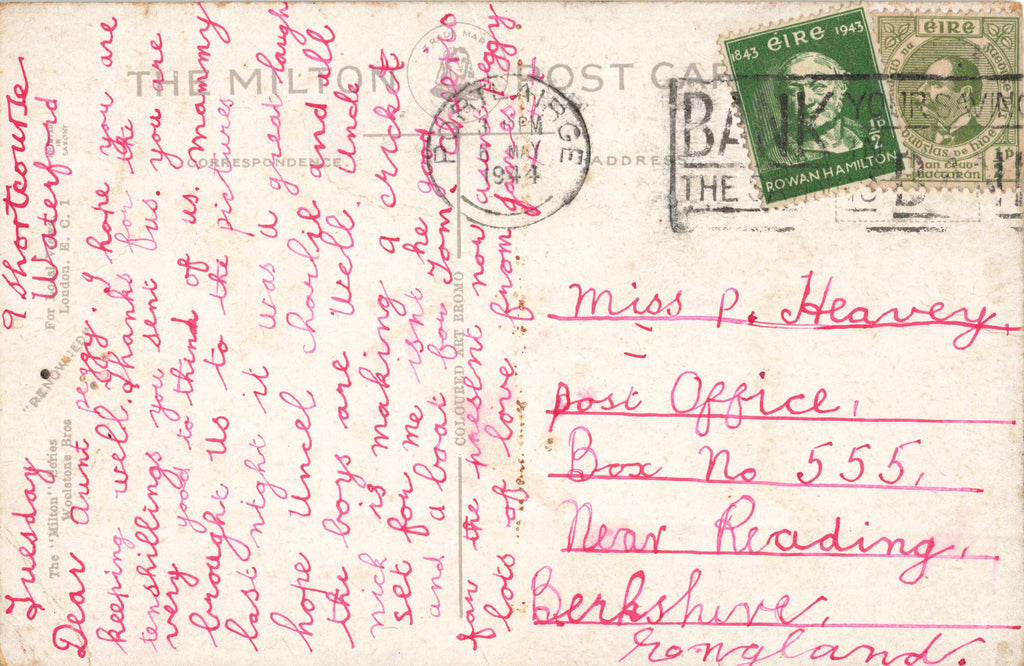 9 Shortcourse
Waterford
Tuesday
Dear Aunt peggy. I hope you are
keeping well. Thanks for the
tenshillings you sent us. you are
very good to think of us. Mammy
brought us to the pictures
last night it was a great laugh
hope Uncel charlie and all
the boys are well. Uncle
nick is making a cricket
set for me isnt he good
and a boat for Tom.
faw the present now aunt peggy
lots of love from James
THE MILTON
POST CARD
TRADE MARK
CORRESPONDENCE.
ADDRESS
"RENOWNED"
The "Milton" Series
Woolstone Bros
London, E. C. 1
COLOURED ART BROMO
PORT LAIRGE
PM
MAY
1944
BANK YOUR SAVINGS
THE
1843 éire 1943
1/2p
ROWAN HAMILTON
éire
Miss P. Heavey,
post Office,
Box No 555,
Near Reading,
Berkshire,
Eongland.